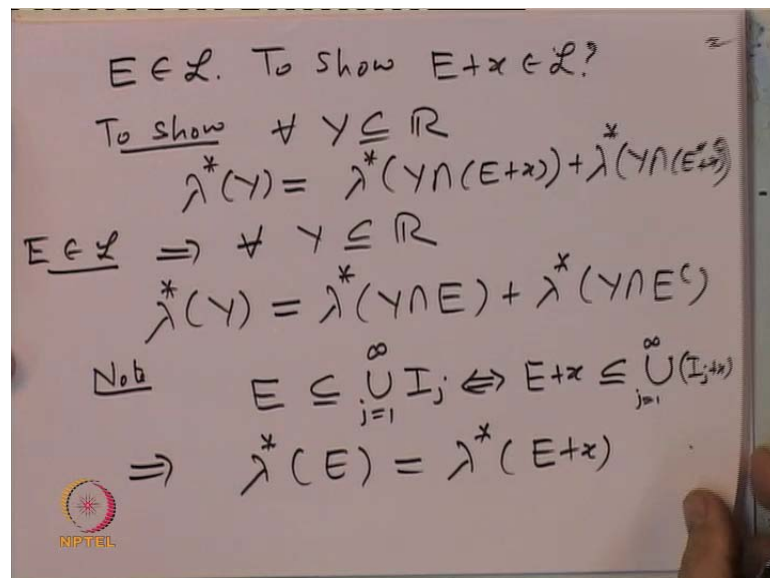 E ∈ ℒ. To show E+x ∈ ℒ?
To show ∀ Y ⊆ ℝ
λ*(Y) = λ*(Y∩(E+x)) + λ*(Y∩(E
E ∈ ℒ ⇒ ∀ Y ⊆ ℝ
λ*(Y) = λ*(Y∩E) + λ*(Y∩Eᶜ)
Note E ⊆ ⋃_{j=1}^{∞} I_j ⇔ E+x ⊆ ⋃_{j=1}^{∞} (I_j+x)
⇒ λ*(E) = λ*(E+x)
NPTEL